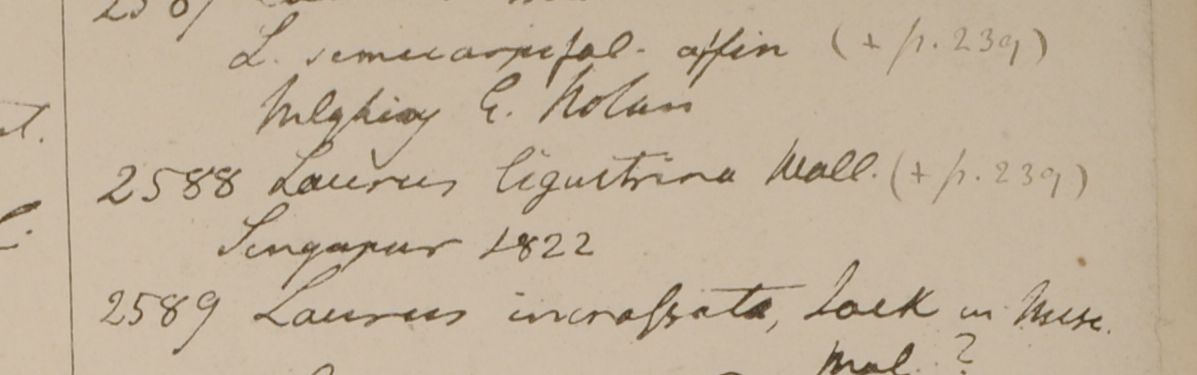 2587 Laurus
L. semecarpifol. affin (+ p. 239)
E. Nolan
2588 Laurus ligustrina Wall. (+ p. 239)
Singapur 1822
2589 Laurus incrassata, Jack in Misc.
Mal. ?